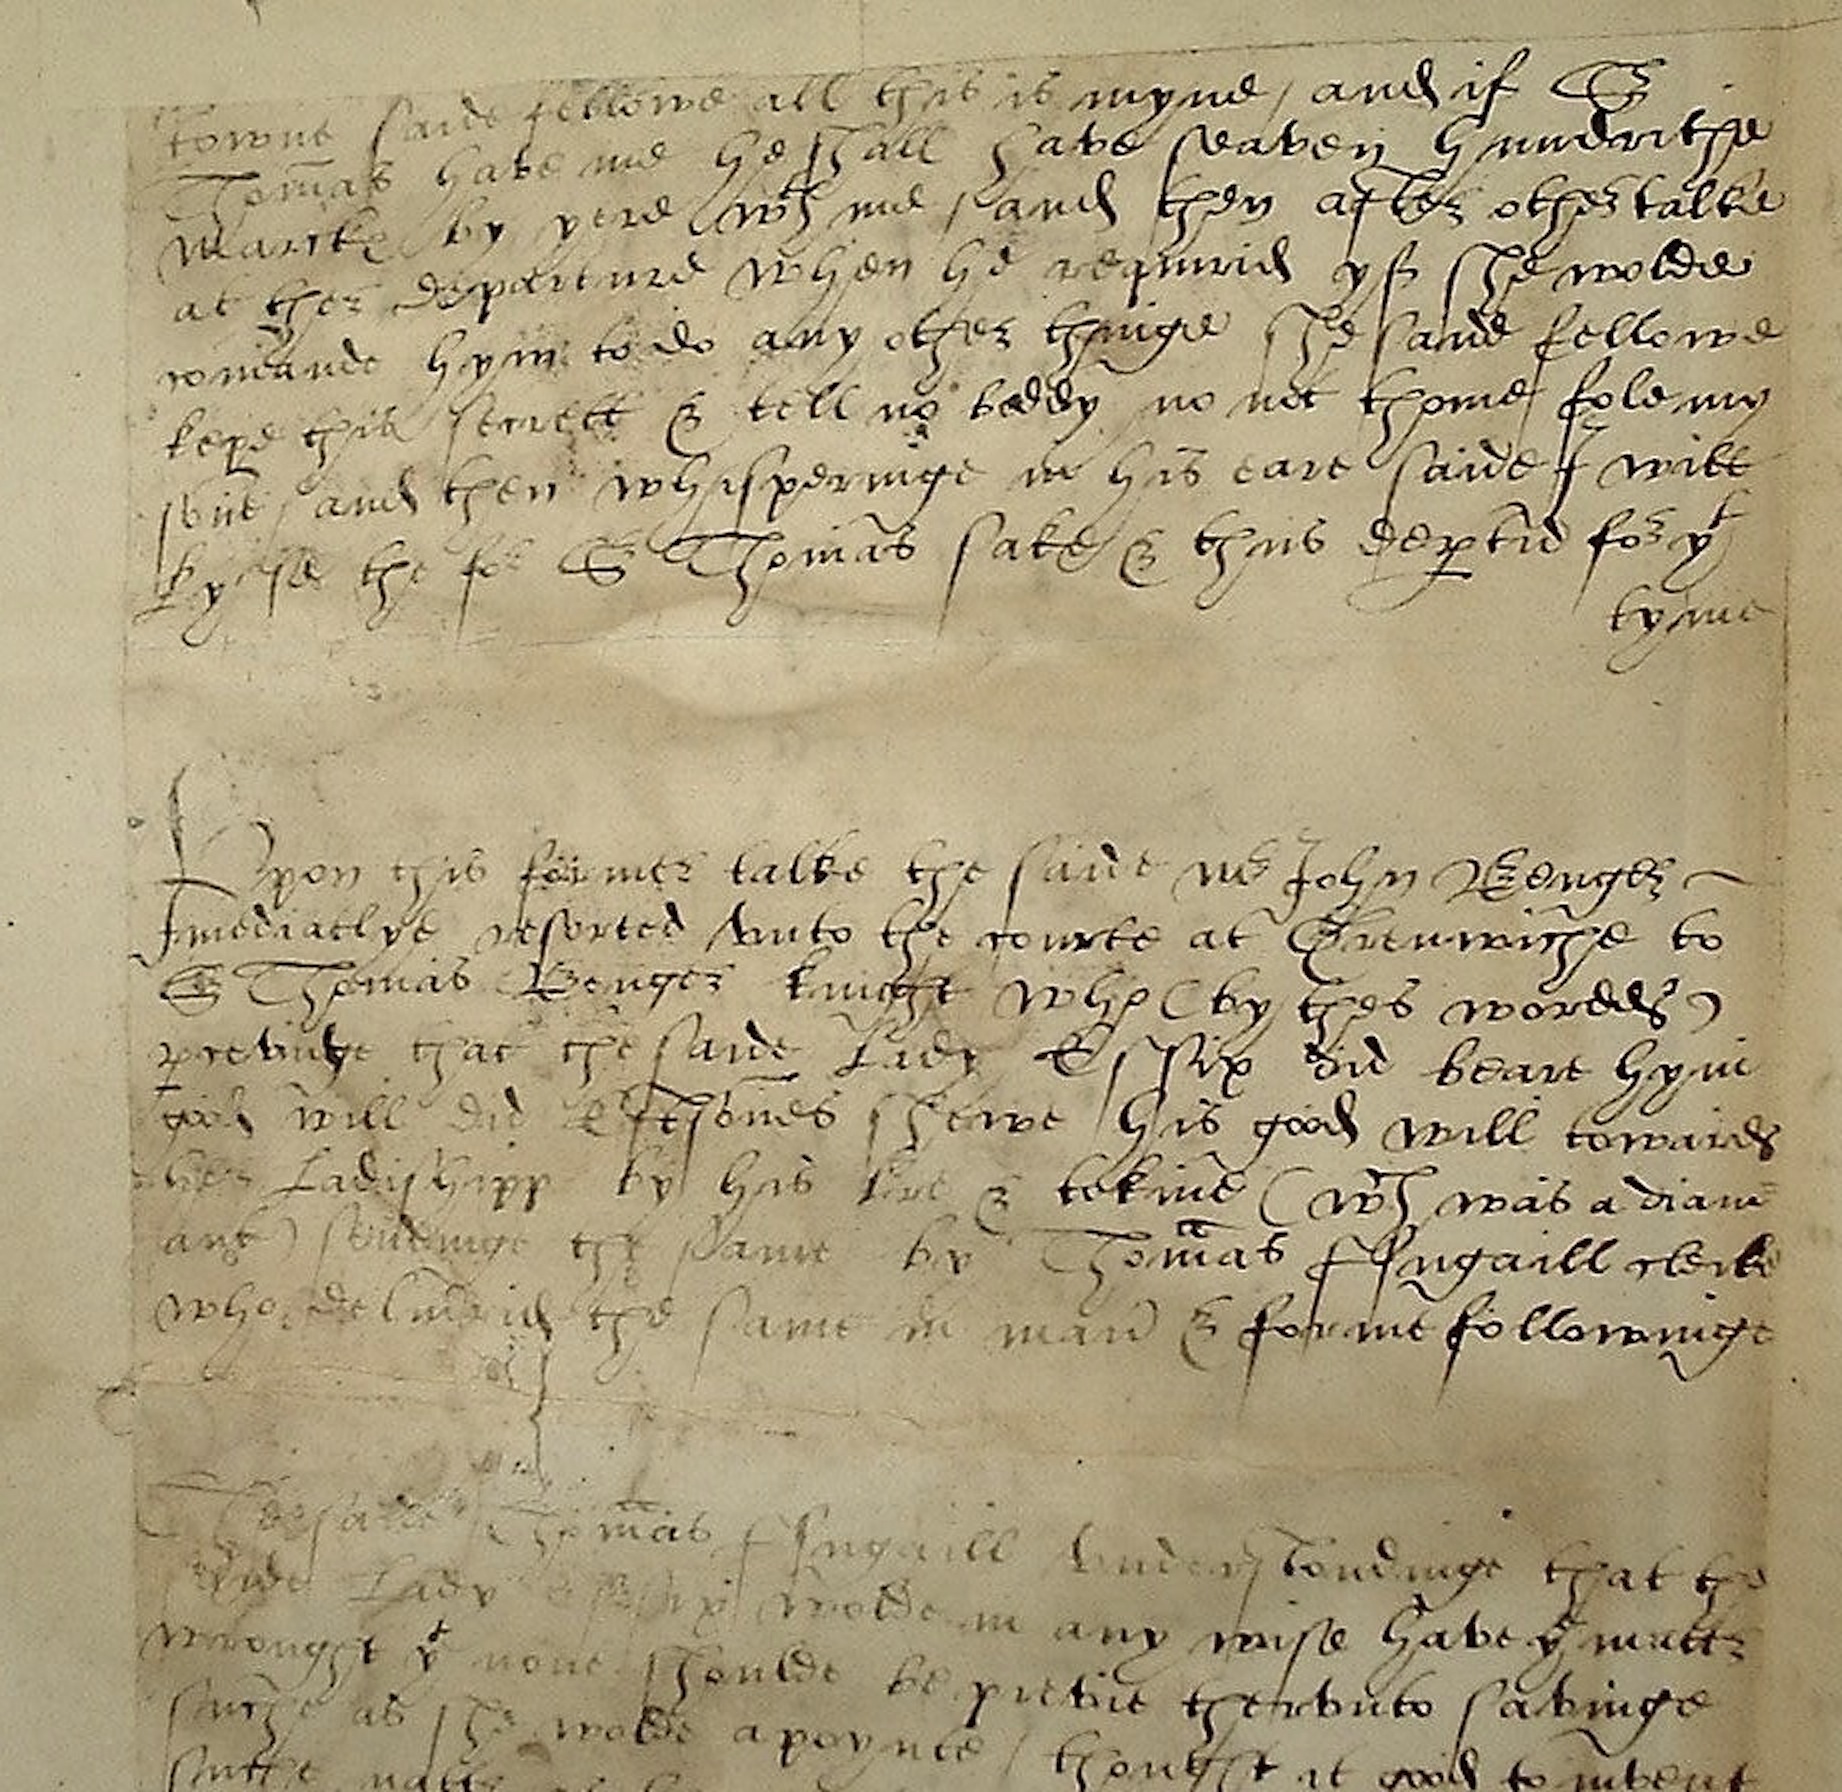 towne saide fellowe all this is myne / and if Sr
Thomas have me he shall have seaven hundrithe
Marcke by yere wth me / and then after other talke
at ther departure when he requirid yf she wolde
comande hym to do any other thinge she saide fellowe
kepe this secrett & tell no boddy no not thome fole my
sone / and then whisperinge in his eare saide I will
kysse the for Sr Thomas sake & thus deptid for yt
tyme
Upon this former talke the saide mr John Benger
Imediatlye resorted unto the courte at Grenwiche to
Sr Thomas Benger knight who (by thes wordes)
pceivinge that the saide Lady Essix did beare hym
good will did eftsones shewe his good will towards
her Ladishipp by his lre & tokine (wch was a diam
ant) sendinge the same by Thomas ffugaill clerke
who deliverid the same in man & forme followinge
The saide Thomas ffugaill understondinge that the
saide Lady Essix wolde in any wise have ye matter
wrought yt none shoulde be previe therunto savinge
suche as she wolde apoynte / thought it good to invent